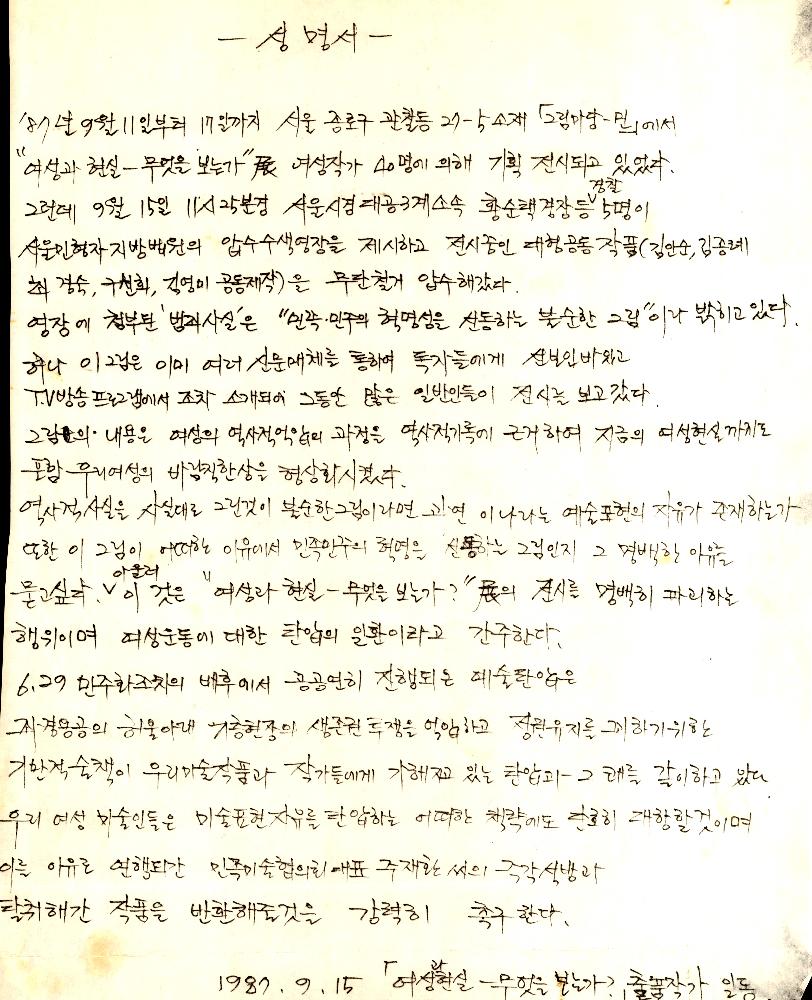 — 성명서 —
'87년 9월 11일부터 17일까지 서울 종로구 관철동 27-5 소재 「그림마당-민」에서
"여성과 현실-무엇을 보는가" 展 여성작가 40명에 의해 기획 전시되고 있었다.
그런데 9월 15일 11시 25분경 서울시경 대공3계소속 황순택경장등 경찰 5명이
서울민형사지방법원의 압수수색영장을 제시하고 전시중인 대형공동작품(김안순,김종례
최경숙, 구선회, 정영미 공동제작)은 무단철거 압수해갔다.
영장에 첨부된 '범죄사실'은 "민족·민주의 혁명성을 선동하는 불순한 그림"이라 밝히고 있다.
허나 이그림은 이미 여러 신문매체를 통하여 독자들에게 선보인바있고
TV방송프로그램에서 조차 소개되어 그동안 많은 일반인들이 전시는 보고갔다.
그림의 내용은 여성의 역사적억압의 과정을 역사적기록에 근거하여 지금의 여성현실까지도
포함 우리여성의 바람직한상을 형상화시켰다.
역사적사실을 사실대로 그린것이 불순한그림이라면 과연 이나라는 예술표현의 자유가 존재하는가
또한 이 그림이 어떠한 이유에서 민족민주의 혁명을 선동하는 그림인지 그 명백한 이유를
묻고싶다. 아울러 이것은 "여성과 현실-무엇을 보는가?" 展의 전시를 명백히 파괴하는
행위이며 여성운동에 대한 탄압의 일환이라고 간주한다.
6.29 민주화조치의 배후에서 공공연히 진행되온 예술탄압은
좌경용공의 허울아래 기층현장의 생존권 투쟁을 억압하고 정권유지를 꾀하기위한
기만적술책이 우리미술작품과 작가들에게 가해지고 있는 탄압과 그 궤를 같이하고 있다
우리 여성 미술인들은 미술표현자유를 탄압하는 어떠한 책략에도 단호히 대항할것이며
이를 이유로 연행되간 민족미술협의회대표 주재환씨의 즉각석방과
탈취해간 작품을 반환해줄것을 강력히 촉구한다.
1987. 9. 15 「여성과현실-무엇을 보는가?」 출품작가 일동